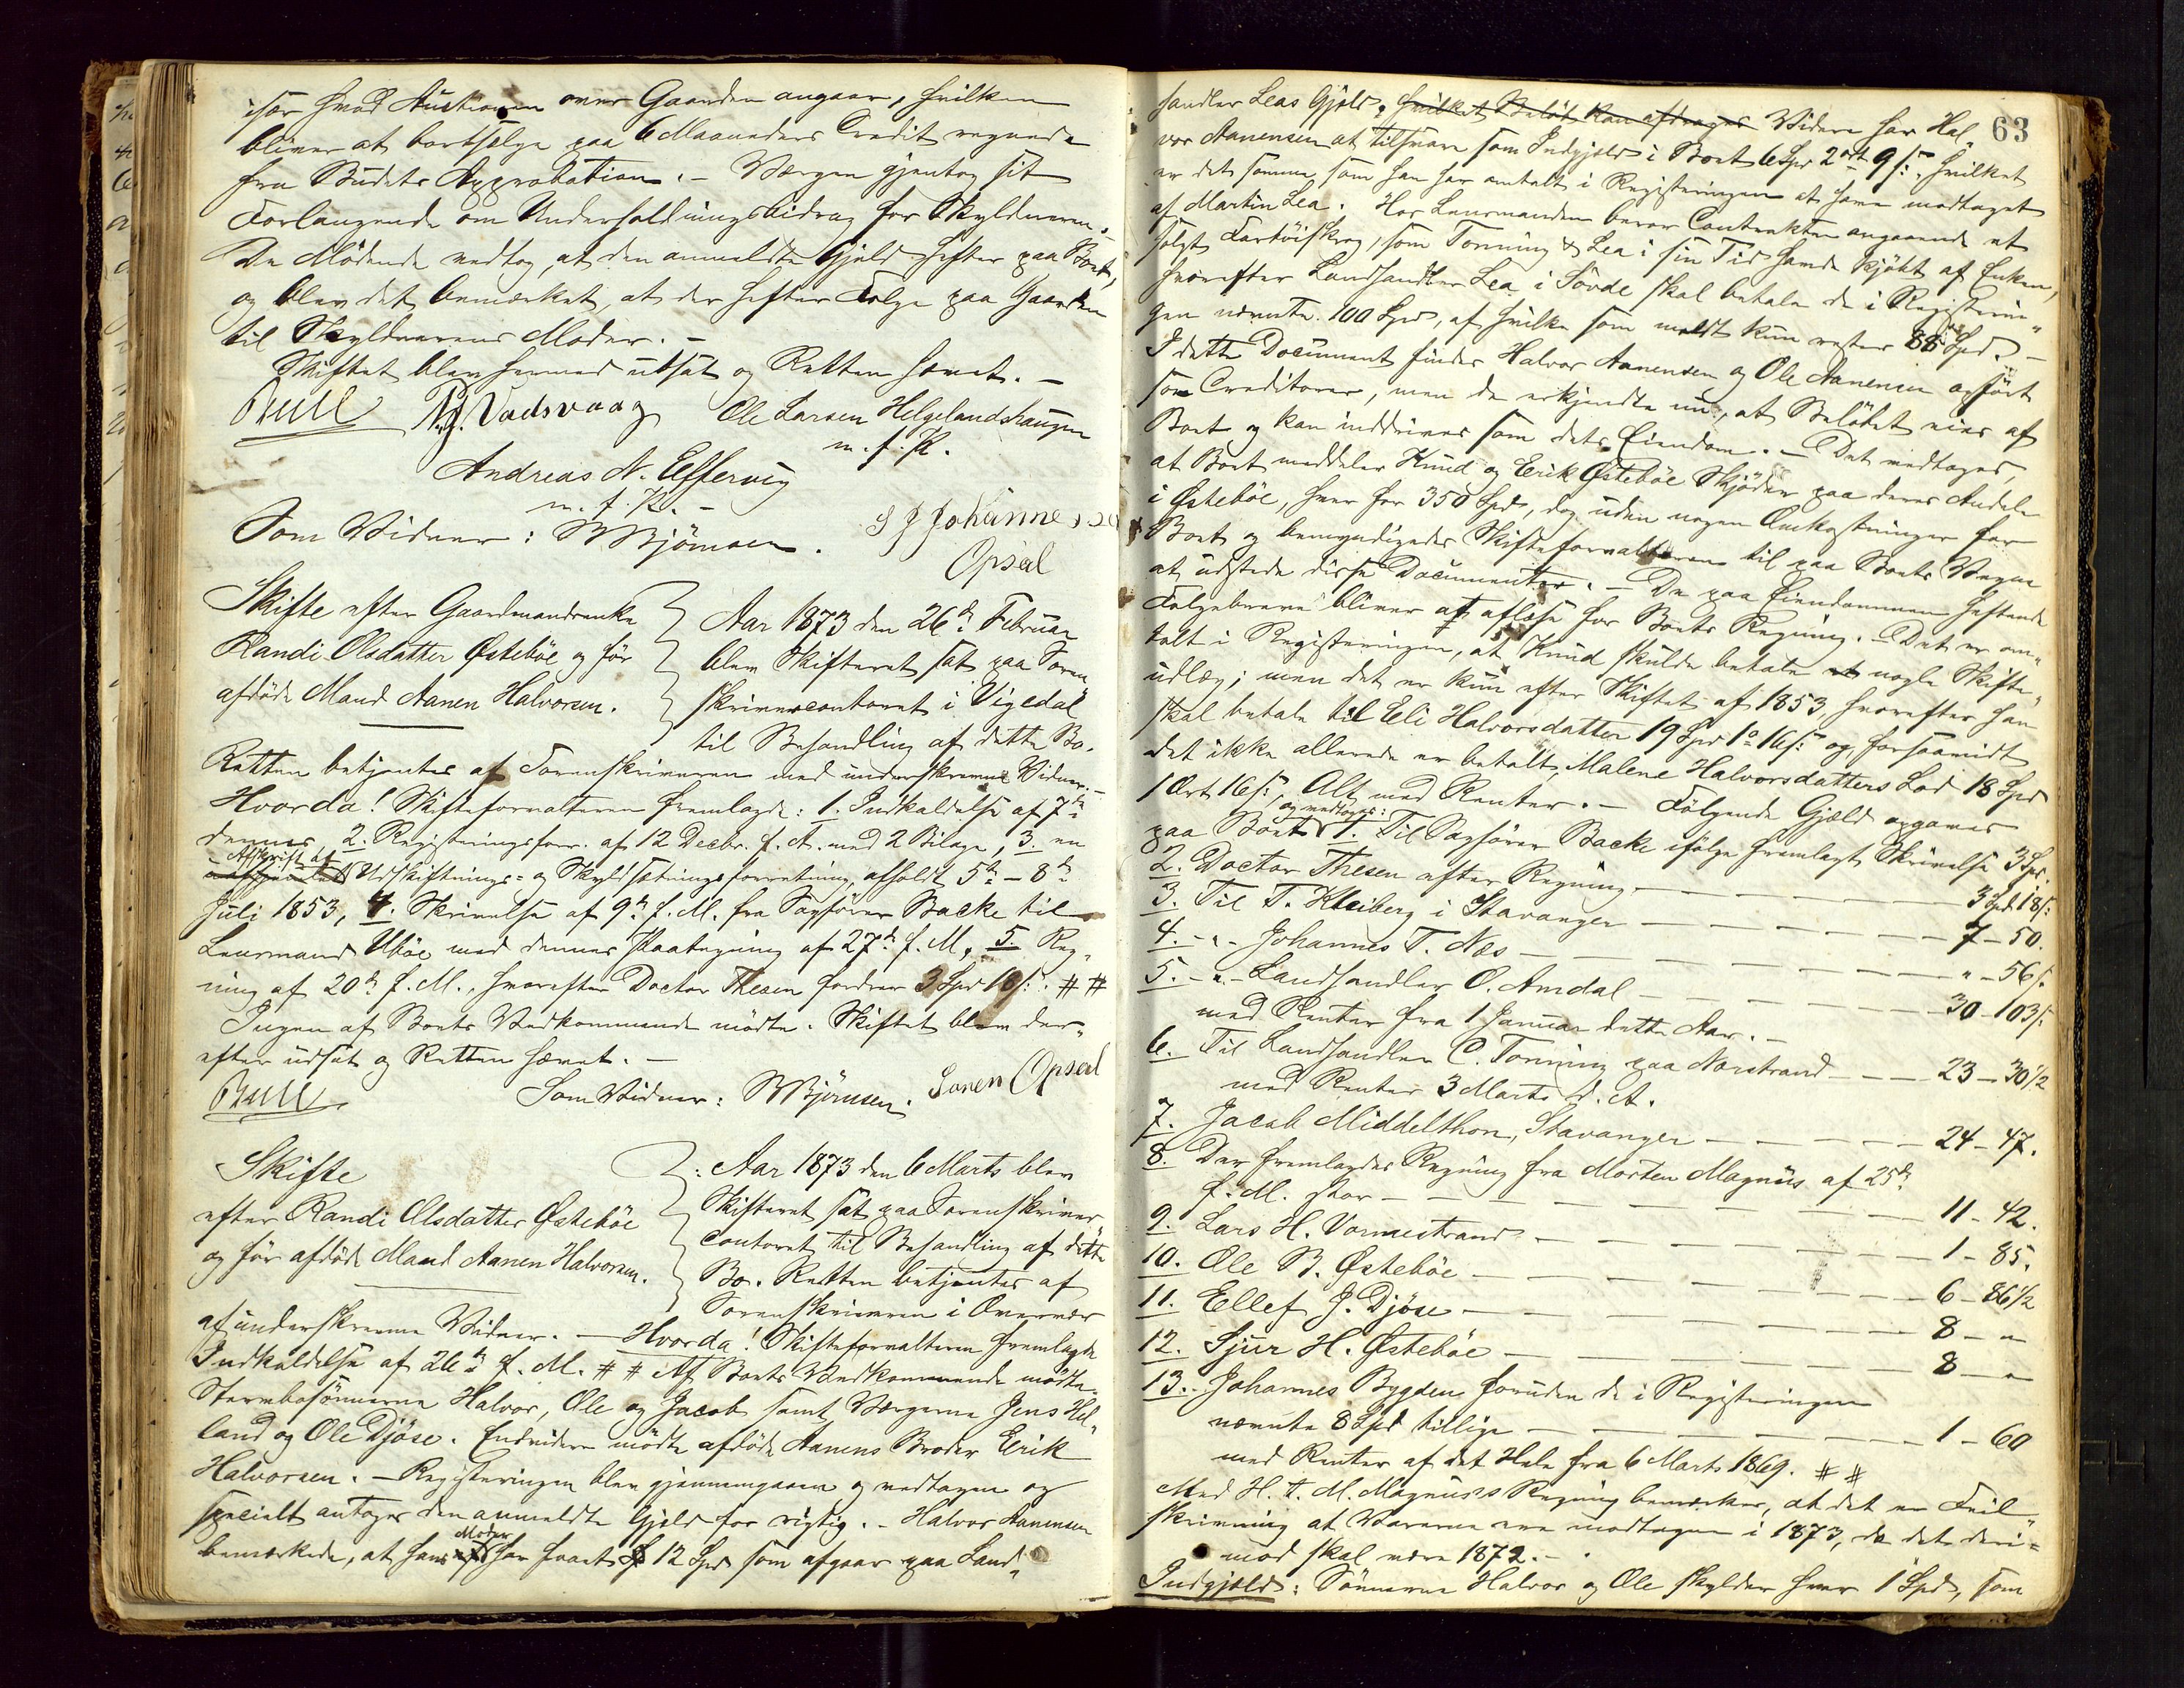 især hvad Auktionen over Gaarden angaar, hvilken
bliver at bortsælge paa 6 Maaneders Credit regnede
fra Budets Approbation. – Værgen gjentog sit
Forlangende om Underholdningsbidrag for Skyldneren. –
De Mødende vedtog, at den anmeldte Gjæld hefter paa Boet,
og blev det bemærket, at der hefter Følge paa Gaarden
til Skyldnerens Moder. –
Skiftet blev hermed udsat og Retten hævet. –
Bull P. J. Vadsvaag Ole Larsen Helgelandshaugen
m. f. P.
Andreas N. Effervig
m. f. P. –
Som Vidner: M Bjørnsen. S J Johannessen
Opsal
Skifte efter Gaardmandsenke
Randi Olsdatter Østebøe og før
afdøde Mand Aanen Halvorsen.
Aar 1873 den 26de Februar
blev Skifteret sat paa Soren
skrivercontoret i Vigedal
til Behandling af dette Bo.
Retten betjentes af Sorenskriveren med underskrevne Vidner. –
Hvorda! Skifteforvalteren fremlagde: 1. Indkaldelse af 7de
dennes 2. Registreringsforr. af 12 Decbr. f. A. med 2 Bilage, 3. en
Afskrift af
Udskiftnings- og Skyldsætningsforretning, afholdt 5te – 8de
Juli 1853, 4. Skrivelse af 9de f. M. fra Sagfører Backe til
Lensmand Ubøe med dennes Paategning af 27de f. M., 5. Reg„
ning af 20de f. M., hvorefter Doctor Thesen fordrer 3 Spd 18 s:. # #
Ingen af Boets Vedkommende mødte. Skiftet blev der„
efter udsat og Retten hævet. –
Bull Som Vidner: M Bjørnsen. Soren Opsal
Skifte
efter Randi Olsdatter Østebøe
og før afdøde Mand Aanen Halvorsen.
: Aar 1873 den 6 Marts blev
Skifteret sat paa Sorenskriver„
contoret til Behandling af dette
Bo. Retten betjentes af
Sorenskriveren i Overvær
af underskrevne Vidner. – Hvorda! Skifteforvalteren fremlagde
Indkaldelse af 26de f. M. # # Af Boets Vedkommende mødte
Stervbosønnerne Halvor, Ole og Jacob samt Værgerne Jens Hel„
land og Ole Djøse. Endvidere mødte afdøde Aanens Broder Erik
Halvorsen. – Registreringen blev gjennemgaaen og vedtagen og
specielt antages den anmeldte Gjæld for rigtig. – Halvor Aanensen
Moder
bemærkede, at hans har faaet 12 Spd som afgaar paa Land„
63
handler Leas Gjæld. hvilket Beløb kan afdrages Videre har Hal„
vor Aanensen at tilsvare som Indgjæld i Boet 6 Spd 2 ort 9 s:, hvilket
er det samme, som han har omtalt i Registreringen at have modtaget
af Martin Lea. Hos Lensmanden beror Contrakten angaaende et
solgt Fartøiskrog, som Tonning & Lea i sin Tid havde kjøbt af Enken,
hvorefter Landhandler Lea i Søvde skal betale de i Registrerin„
gen nævnte 100 Spd, af hvilke som meldt kun rester 88 Spd. –
I dette Document findes Halvor Aanensen og Ole Aanensen opført
som Creditorer, men de erkjendte nu, at Beløbet eies af
Boet og kan inddrives som dets Eiendom. – Det vedtages,
at Boet meddeler Knud og Erik Østebøe Skjøder paa deres Andele
i Østebøe, hver for 350 Spd, dog uden nogen Omkostninger for
Boet og bemyndigedes Skifteforvalteren til paa Boets Vegne
at udstede disse Documenter. – De paa Eiendommen heftende
Følgebreve bliver at aflæse for Boets Regning. – Det er om„
talt i Registreringen, at Knud skulde betale nogle Skifte„
udlæg; men det er kun efter Skiftet af 1853, hvorefter han
skal betale til Eli Halvorsdatter 19 Spd 1 o 16 s: og, forsaavidt
det ikke allerede er betalt, Malene Halvorsdatters Lod 18 Spd
1 Ort 16 s:, Alt med Renter. – Følgende Gjæld opgaves
og vedtoges:
paa Boet 1. Til Sagfører Backe ifølge fremlagt Skrivelse 3 Spd.
2. Doctor Thesen efter Regning — 3 Spd 18 s:
3. Til T. Kleiberg i Stavanger — 7 – 50.
4. – „ – Johannes T. Næs — „ – 56 s.
5. – „ – Landhandler O. Amdal — 30 – 103 s.
med Renter fra 1 Januar dette Aar. –
6. Til Landhandler C. Tonning paa Norstrand — 23 – 30 1/2
med Renter 3 Marts d. A.
7. Jacob Middelthon, Stavanger — 24 – 47.
8. Der fremlagdes Regning fra Morten Magnus af 25de
f. M. stor — 11 – 42.
9. Lars H. Vormestrand — 1 – 85.
10. Ole B. Østebøe — 6 – 86 1/2
11. Ellef J. Djøse — 8 – „
12. Sjur H. Østebøe — 8 – „
13. Johannes Bygden foruden de i Registreringen
nævnte 8 Spd tillige — 1 – 60
med Renter af det Hele fra 6 Marts 1869. # #
Med H. t. M. Magnus's Regning bemærkes, at det er Feil„
skrivning at Varerne ere modtagne i 1873, da det deri=
mod skal være 1872. –
Indgjæld: Sønnerne Halvor og Ole skylder hver 1 Spd, som